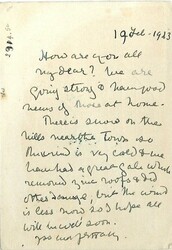 19 Feb - 1923
How are you all
my dear? We are
going strong & have good
news of those at home.
There is snow on the
hills near the Town so
is very cold & we
have had a great gale which
removed zinc roofs & did
other damage, but the wind
is less now so I hope all
will be well soon.